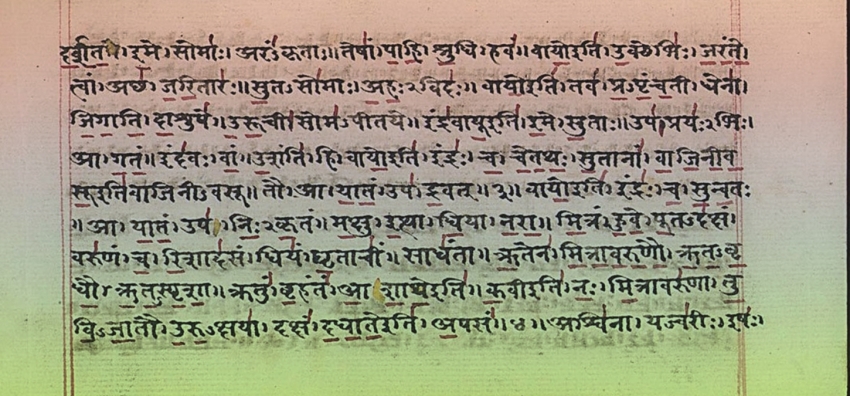 दर्शत॑। इ॒मे। सोमाः॑। अरं॑ऽकृताः॥ तेषां॑। पा॒हि॒। श्रु॒धि। हव॑॥ वायो॒इति॑। उ॒क्थेभिः॑। ज॒रं॒ते॒
त्वां। अच्छ॑। ज॒रि॒तारः॑॥ सु॒तऽसो॑माः। अ॒हः॒ऽविदः॑॥ वायो॒इति॑। तव॑। प्र॒ऽपृं॒च॒ती। धेना॑।
जि॒गा॒ति॒। दा॒शुषे॑॥ उ॒रू॒ची। सोम॑ऽपीतये॥ इंद्र॑वायू॒इति॑। इ॒मे। सु॒ताः॥ उप॑। प्रयः॑ऽभिः।
आ। ग॒तं॒॥ इंद॑वः। वां॒। उ॒शंति॑। हि॥ वायो॒इति॑। इंद्रः॑। च॒। चे॒त॒थः॒। सु॒तानां॑। वा॒जि॒नी॒व
सू॒इति॑वाजिनीऽवसू॥ तौ। आ। या॒तं॒। उप॑। द्र॒वत्॥ ३॥ वायो॒इति॑। इंद्रः॑। च॒। सु॒न्व॒तः
॥ आ। या॒तं॒। उप॑। निः॒ऽकृ॒तं॥ म॒क्षु। इ॒त्था। धि॒या। न॒रा॥ मि॒त्रं। हु॒वे॒। पू॒तऽद॑क्षं।
वरु॑णं। च॒। रि॒शाद॑सं॥ धियं॑। घृ॒ताचीं॑। साधं॑ता॥ ऋ॒तेन॑। मि॒त्रा॒व॒रु॒णौ॒। ऋ॒त॒ऽवृ॒
धौ॒। ऋ॒त॒ऽस्पृ॒शा॒॥ क्रतुं॑। बृ॒हंतं॑। आ॒शा॒थे॒इति॑॥ क॒वीइति॑। नः॒। मि॒त्रावरु॑णा। तु॒
वि॒ऽजा॒तौ। उ॒रु॒ऽक्षया॑। दक्षं॑। द॒धा॒ते॒इति॑। अ॒पसं॑॥ ४॥ अश्वि॑ना। यज्व॑रीः। इषः॑।